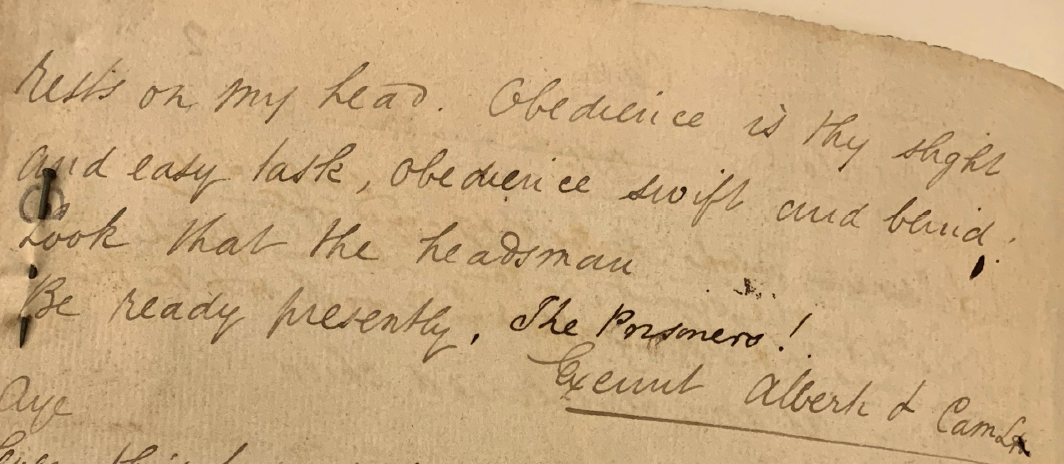 rests on my head. Obedience is thy slight
and easy task, obedience swift and blind.
Look that the headsman
Be ready presently. The Prisoners!
Exeunt Albert &
Aye